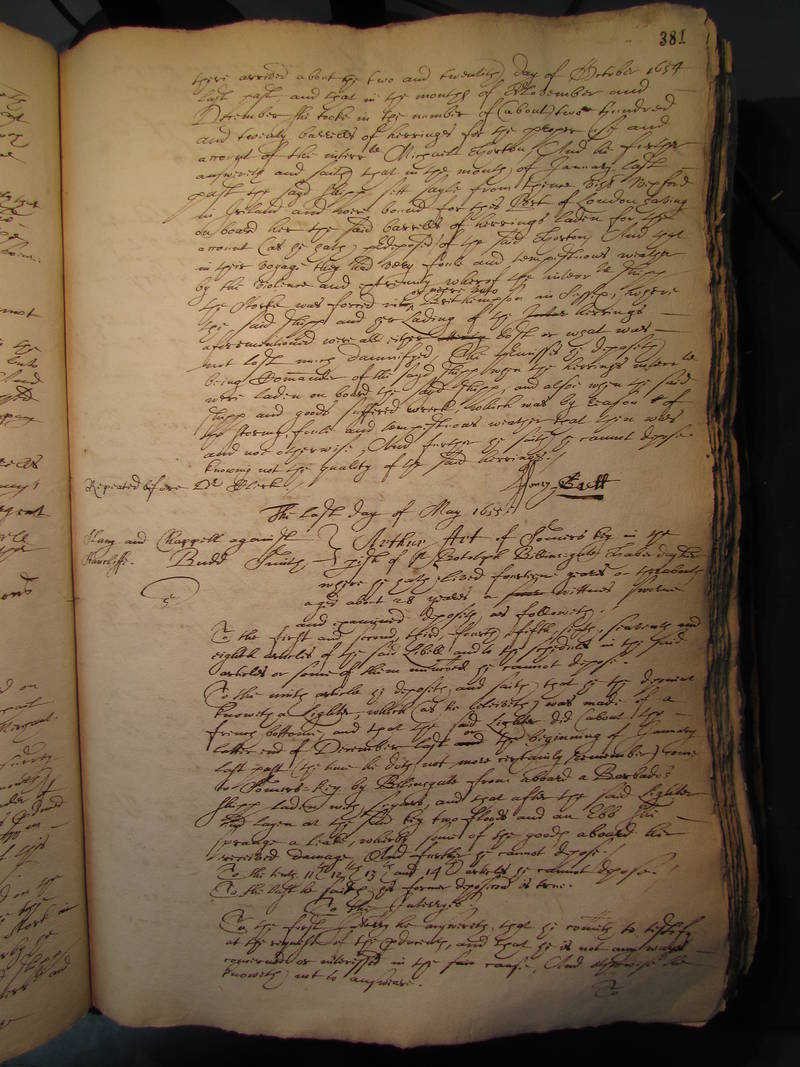 381
there arrived about the two and twentieth day of October 1654
last past and that in the monthes of November and
December she tooke in the number of (about) two hundred
and twenty barrells of herrings for the proper use and
account of the interr te Michaell Horton, And hee further
answereth and saith that in the moneth of January last
past the sayd shipp sett sayle from thence
in Ireland and were bound for this Port of London having
on board her the said barrells of herrings laden for the
account (as he hath predeposed) of the said Horton, And that
in their voyage they had very foule and tempestuous weather
by the violence and extremity whereof the interr te shipp
or neere unto
the Storke was forced into in Sussex, where
the said shipp and her Lading of the herrings
aforementioned were all either lost or what was
not lost much damnifyed, this he deposeth
being Comander of the sayd shipp when the herrings interr te
were laden on board the sayd shipp, and alsoe when the said
shipp and goods suffered wreck, which was by reason of
the stormy, foule and tempestuous weather that then was
and not otherwise, And further he saith he cannot depose
knowing not the quality of the said herrings.
Repeated before Dr Clerk
The last day of May 1655
and Chappell against
Budd Smith
Arthur Art of Somers key in the
pish of St Bottolph Billinsgate
where he hath lived fourteene yeares or thereabouts
aged about 28 yeares a wittnes sworne
and examined deposeth as followeth.
To the first and second, third, fourth, fifth, sixth, seaventh and
eighth articles of the said libell and to the schedule in the said
articles or some of them he cannot depose.
To the ninth article he deposeth and saith that he the deponent
knoweth a Lighter, which (as he beleeveth) was made of a
french bottome, and that the said Lighter did (about the
latter end of December last or the beginning of January
last past (the time he doth not more certainly remember) come
to Somers-Key by Billinsgate from aboard a Barbados
shipp laden with Sugars, and that after the said Lighter
had layen at the said key two floods and an Ebb she
sprange a leake, whereby some of the goods aboard her
received damage, And further he cannot depose.
To the tenth, 11th 12th 13th and 14th articles he cannot depose.
To the last he saith his former deposition is true.
To the Interries.
To the first Interry he answereth, that he cometh to testify
at the request of the producents, and that he is not any wayes
concerned or interessed in the cause, And otherwise he
knoweth not to answeare.
To